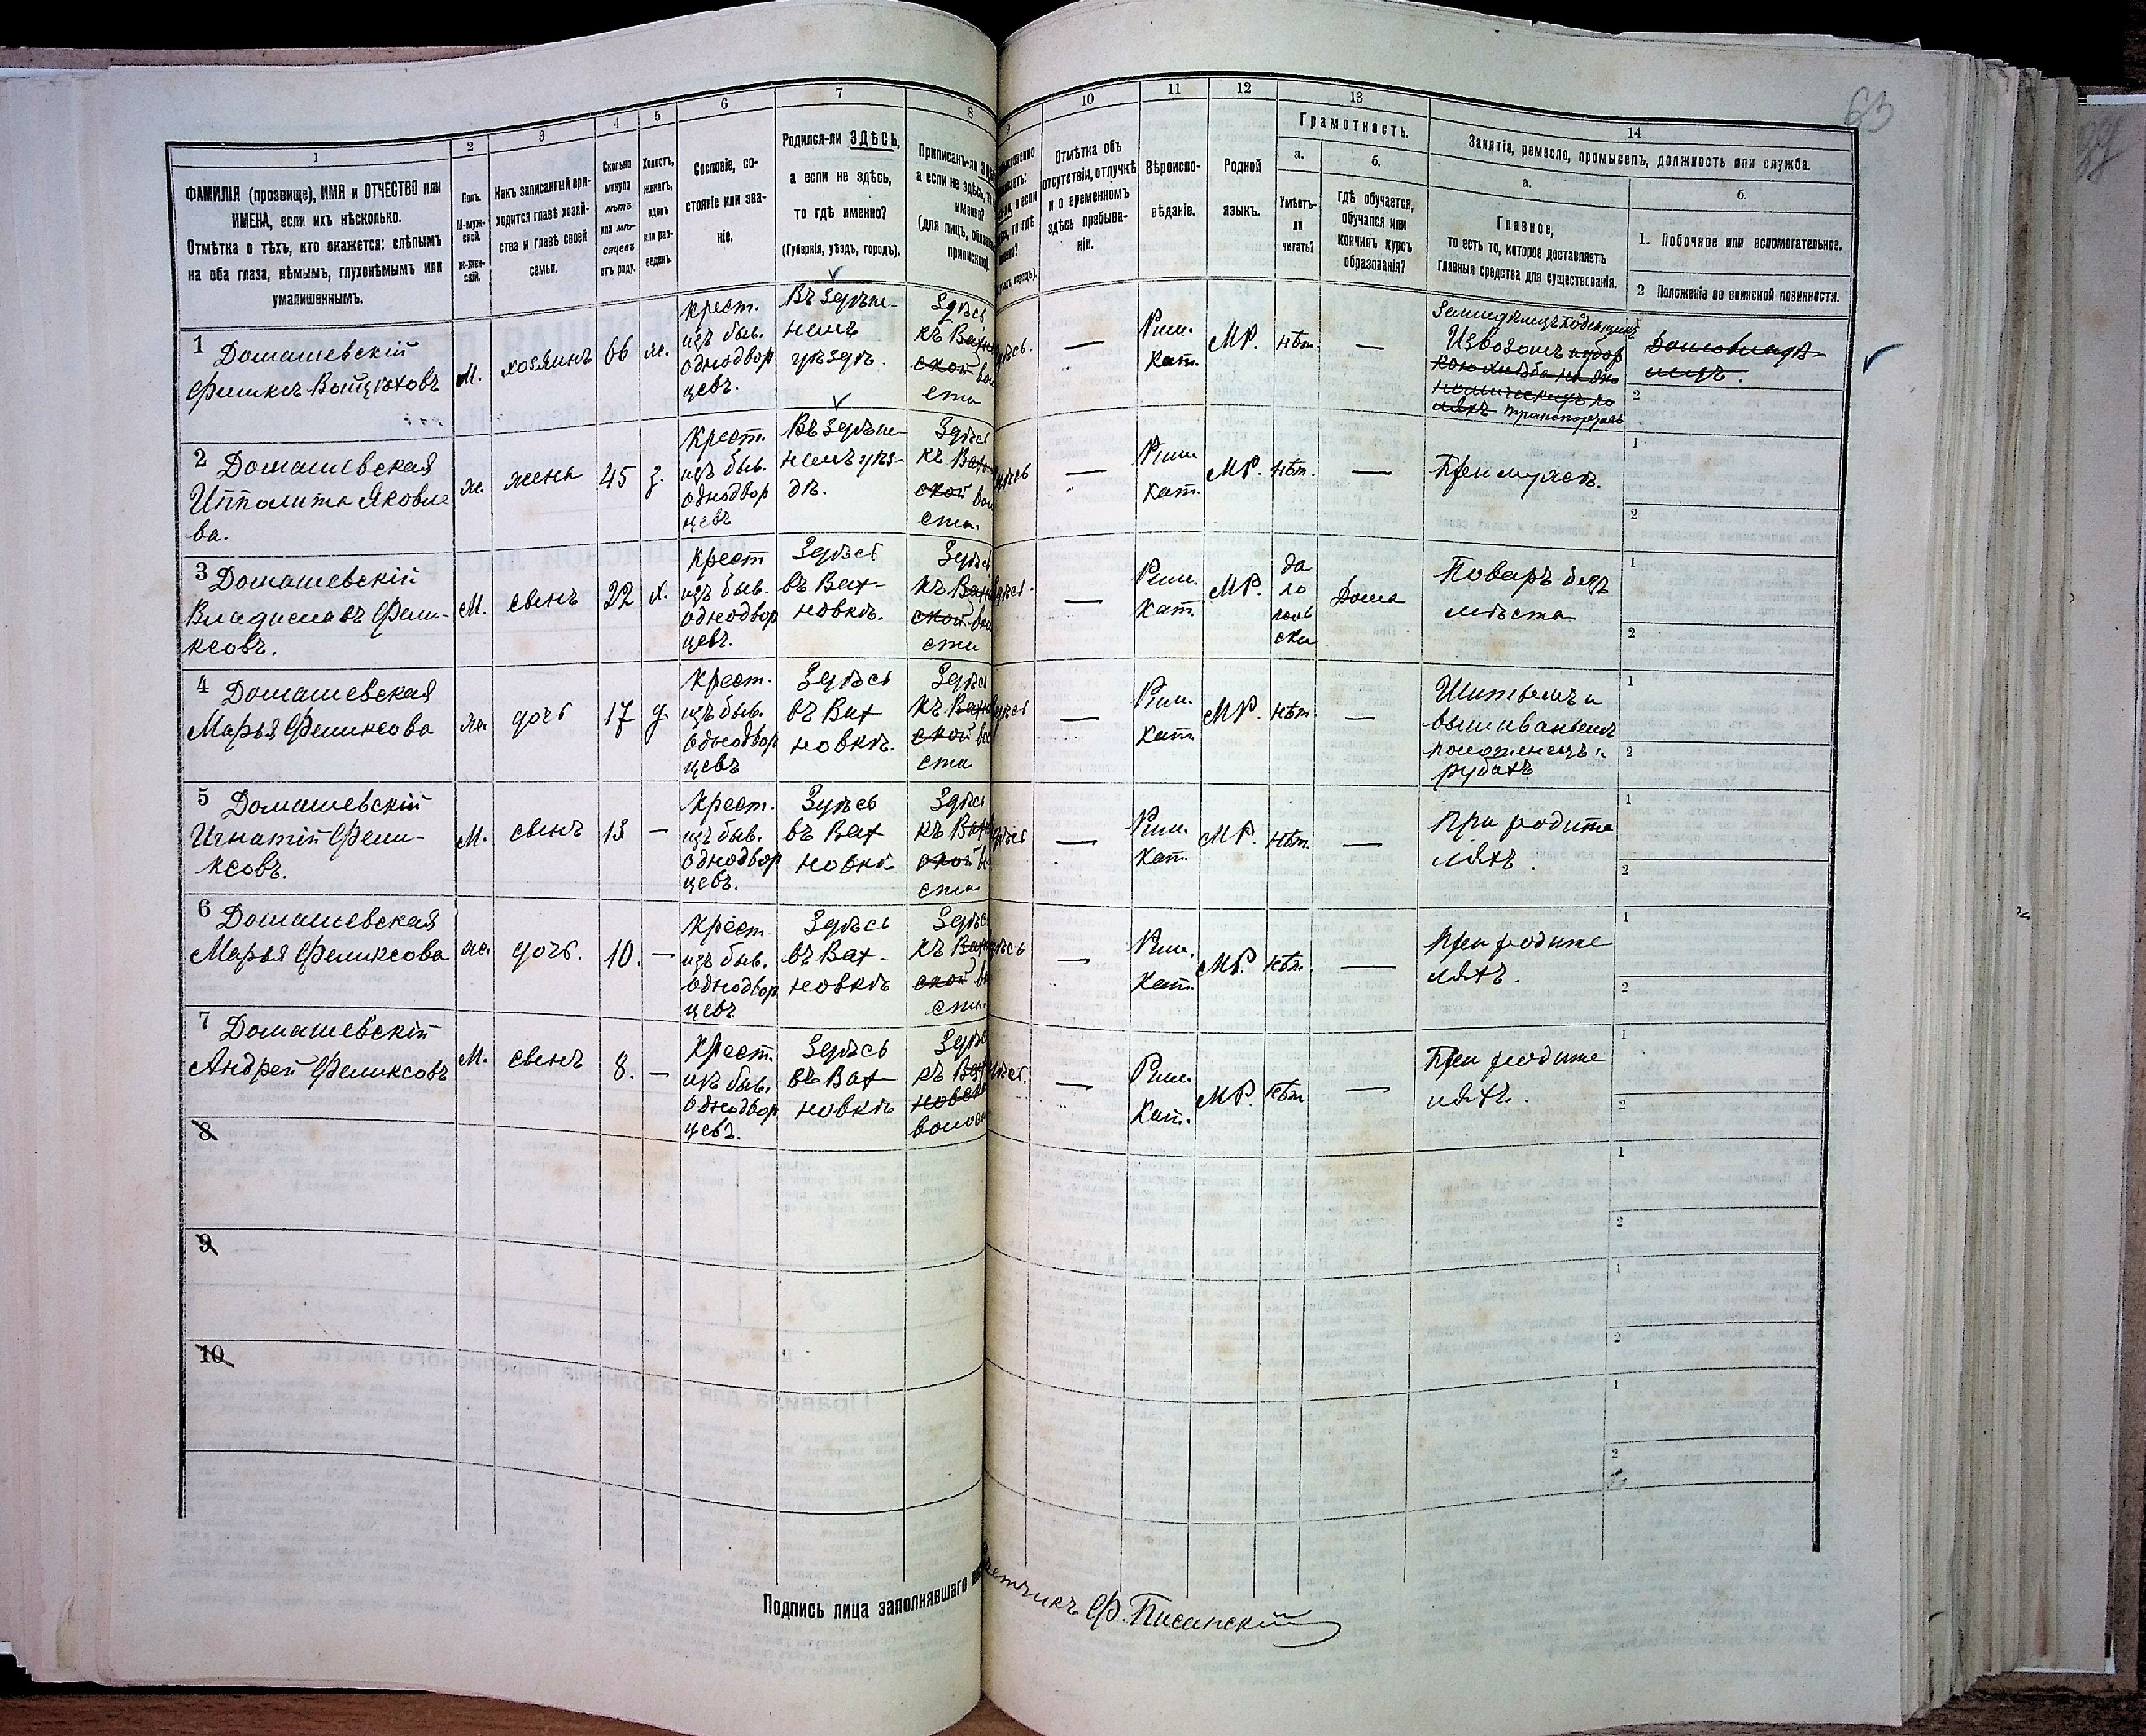 63
1
2
3
4
5
6
7
8
10
11
12
13
14
ФАМИЛІЯ (прозвище), ИМЯ и ОТЧЕСТВО или
ИМЕНА, если ихъ нѣсколько.
Отмѣтка о тѣхъ, кто окажется: слѣпымъ
на оба глаза, нѣмымъ, глухонѣмымъ или
умалишеннымъ.
Полъ.
М-муж-
ской.
Ж-жен-
скій.
Какъ записанный при-
ходится главѣ хозяй-
ства и главѣ своей
семьи.
Сколько
минуло
лѣтъ
или мѣ-
сяцевъ
отъ роду.
Холостъ,
женатъ,
вдовъ
или раз-
веденъ.
Сословіе, со-
стояніе или зва-
ніе.
Родился-ли ЗДѢСЬ,
а если не здѣсь,
то гдѣ именно?
(Губернія, уѣздъ, городъ).
Приписанъ-ли
а если не здѣсь,
именно?
(для лицъ,
Отмѣтка объ
отсутствіи, отлучкѣ
и о временномъ
здѣсь пребыва-
ніи.
Вѣроиспо-
вѣданіе.
Родной
языкъ.
Грамотность.
а.
Умѣетъ-
ли
читать?
б.
гдѣ обучается,
обучался или
кончилъ курсъ
образованія?
Занятіе, ремесло, промыселъ, должность или служба.
а.
Главное,
то есть то, которое доставляетъ
главныя средства для существованія.
б.
1. Побочное или вспомогательное.
2 Положеніе по воинской повинности.
1 Домашевскій
Феликсъ Войцѣховъ
М.
хозяинъ
66
ж.
крест.
изъ быв.
однодвор
цевъ.
Въ здѣш-
немъ
уѣздѣ.
Здѣсь
къ
ской
сти
—
Рим.
Кат.
МР.
нѣт.
—
Извозомъ
1
2
2 Домашевская
Ипполита Яковле
ва.
ж.
жена
45
з.
Крест.
изъ быв.
однодвор
цевъ
Въ здѣш-
немъ уѣз-
дѣ.
Здѣсь
къ
ской
сти.
—
Рим.
Кат.
МР.
нѣт.
—
При мужѣ.
1
2
3 Домашевскій
Владиславъ Фели-
ксовъ.
М.
сынъ
22
х.
Крест
изъ быв.
однодвор
цевъ.
Здѣсь
въ Вах-
новкѣ.
Здѣсь
къ
ской
сти
—
Рим.
Кат.
МР.
да
по
поль
ски
Дома
Поваръ безъ
мѣста
1
2
4 Домашевская
Марья Феликсова
ж.
дочь
17
д.
Крест.
изъ быв.
однодвор
цевъ
Здѣсь
въ Вах
новкѣ.
Здѣсь
къ
ской
сти
—
Рим.
Кат.
МР.
нѣт.
—
Шитьемъ и
вышиваньемъ
полотенецъ и
рубахъ
1
2
5 Домашевскій
Игнатій Фели-
ксовъ.
М.
сынъ
13
—
Крест.
изъ быв.
однодвор
цевъ.
Здѣсь
въ Вах
новкѣ
Здѣсь
къ
ской
сти
—
Рим.
Кат.
МР.
нѣт.
—
При родите
ляхъ.
1
2
6 Домашевская
Марья Феликсова
ж.
дочь.
10.
—
Крест.
изъ быв.
однодвор
цевъ
Здѣсь
въ Вах-
новкѣ
Здѣсь
къ
ской
сти.
—
Рим.
Кат.
МР.
нѣт.
—
При родите
ляхъ.
1
2
7 Домашевскій
Андрей Феликсовъ
М.
сынъ
8.
—
Крест.
изъ быв.
однодвор
цевъ.
Здѣсь
въ Вах-
новкѣ
Здѣсь
къ
волост
—
Рим.
Кат.
МР.
нѣт
—
При родите
ляхъ.
1
2
8
1
2
9
1
2
10
1
2
Подпись лица заполнявшаго
Ф. Писанскій